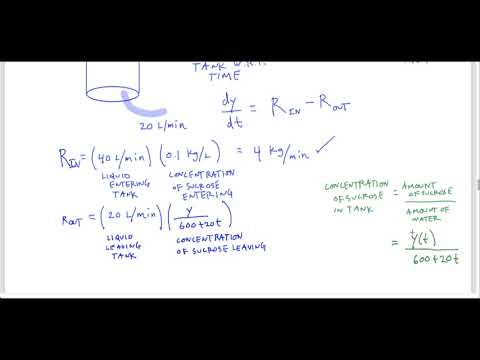 TANK W.R.T.
TIME
20 L/min
dy/dt = R_IN − R_OUT
R_IN = (40 L/min) (0.1 kg/L) = 4 kg/min ✓
LIQUID ENTERING TANK
CONCENTRATION OF SUCROSE ENTERING
R_OUT = (20 L/min) (y/(600+20t))
LIQUID LEAVING TANK
CONCENTRATION OF SUCROSE LEAVING
CONCENTRATION OF SUCROSE IN TANK = AMOUNT OF SUCROSE / AMOUNT OF WATER
= y(t)/(600+20t)